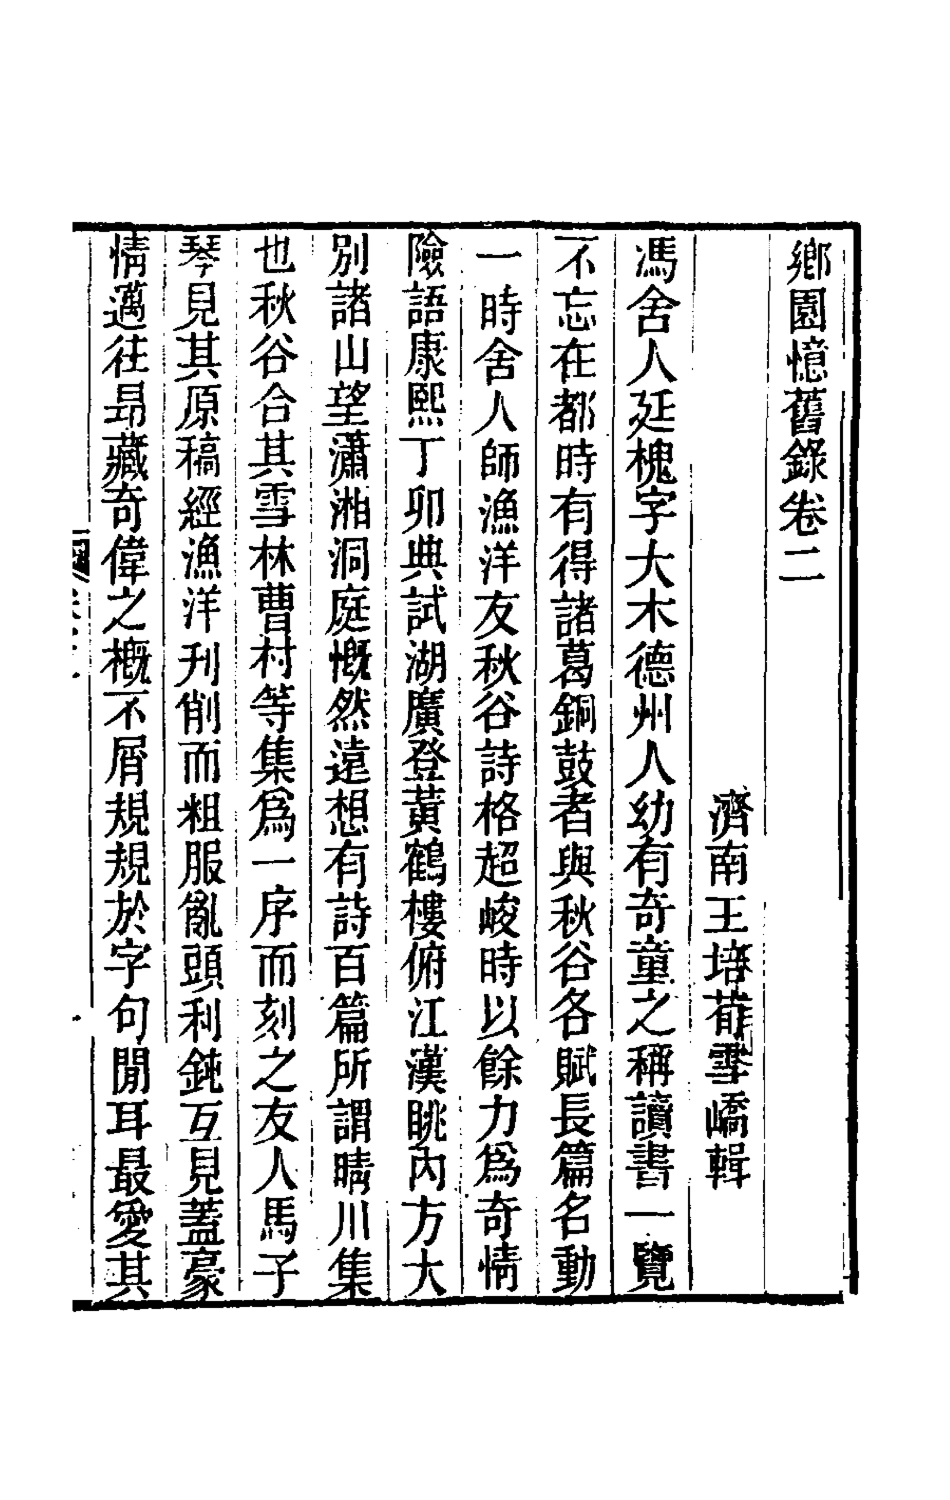 鄉園憶舊錄卷二
濟南王培荀雪嶠輯
馮舍人廷櫆字大木德州人幼有奇童之稱讀書一覽
不忘在都時有得諸葛銅鼓者與秋谷各賦長篇名動
一時舍人師漁洋友秋谷詩格超峻時以餘力為奇情
險語康熙丁卯典試湖廣登黃鶴樓俯江漢眺內方大
別諸山望瀟湘洞庭慨然遠想有詩百篇所謂晴川集
也秋谷合其雪林曹村等集為一序而刻之友人馬子
琴見其原稿經漁洋刋削而粗服亂頭利鈍互見蓋豪
情邁往昂藏奇偉之概不屑規規於字句閒耳最愛其